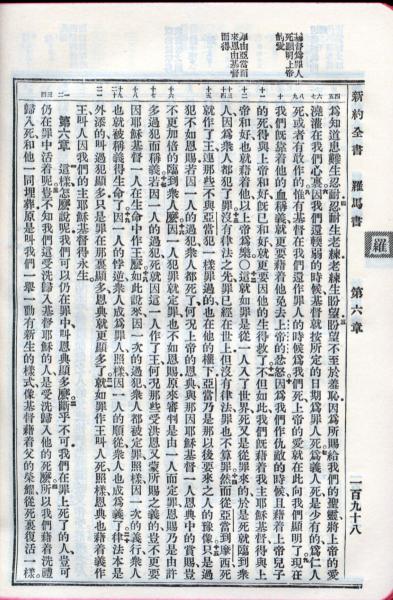 新約全書 羅馬書 第六章 二百九十八
羅
基督為罪人
死顯明上帝
的愛
罪由亞當而
來恩由基督
而得
為知道患難生忍耐忍耐生老練老練生盼望盼望不至於羞恥因為所賜給我們的聖靈將上帝的愛
澆灌在我們心裏因我們還輭弱的時候基督就按所定的日期為罪人死為義人死是少有的為仁人
死或者有敢作的惟有基督在我們還作罪人的時候為我們死上帝的愛就在此向我們顯明了現在
我們既靠着他的血稱義就更要藉着他免去上帝的忿怒因為我們作仇敵的時候且藉着上帝兒子
的死得與上帝和好既已和好就更要因他的生得救了不但如此我們既藉着我主耶穌基督得與上
帝和好也就藉着他以上帝為樂〇這就如罪是從一人入了世界死又是從罪來的於是死就臨到衆
人因為衆人都犯了罪沒有律法之先罪已經在世上但沒有律法罪也不算罪然而從亞當到摩西死
就作了王連那些不與亞當犯一樣罪過的也在他的權下亞當乃是那以後要來之人的豫像只是過
犯不如恩賜若因一人的過犯衆人都死了何況上帝的恩典與那因耶穌基督一人恩典中的賞賜豈
不更加倍的臨到衆人麼因一人犯罪就定罪也不如恩賜原來審判是由一人而定罪恩賜乃是由許
多過犯而稱義若因一人的過犯死就因這一人作了王何況那些受洪恩又蒙所賜之義的豈不更要
因耶穌基督一人在生命中作王麼如此說來因一次的過犯衆人都被定罪照樣因一次的義行衆人
也就被稱義得生命了因一人的悖逆衆人成為罪人照樣因一人的順從衆人也成為義了律法本是
外添的叫過犯顯多只是罪在那裏顯多恩典就更顯多了就如罪作王叫人死照樣恩典也藉着義作
王叫人因我們的主耶穌基督得永生
第六章 這樣怎麼說呢我們可以仍在罪中叫恩典顯多麼斷乎不可我們在罪上死了的人豈可
仍在罪中活着呢豈不知我們這受洗歸入基督耶穌的人是受洗歸入他的死麼所以我們藉着洗禮
歸入死和他一同埋葬原是叫我們一舉一動有新生的樣式像基督藉着父的榮耀從死裏復活一樣